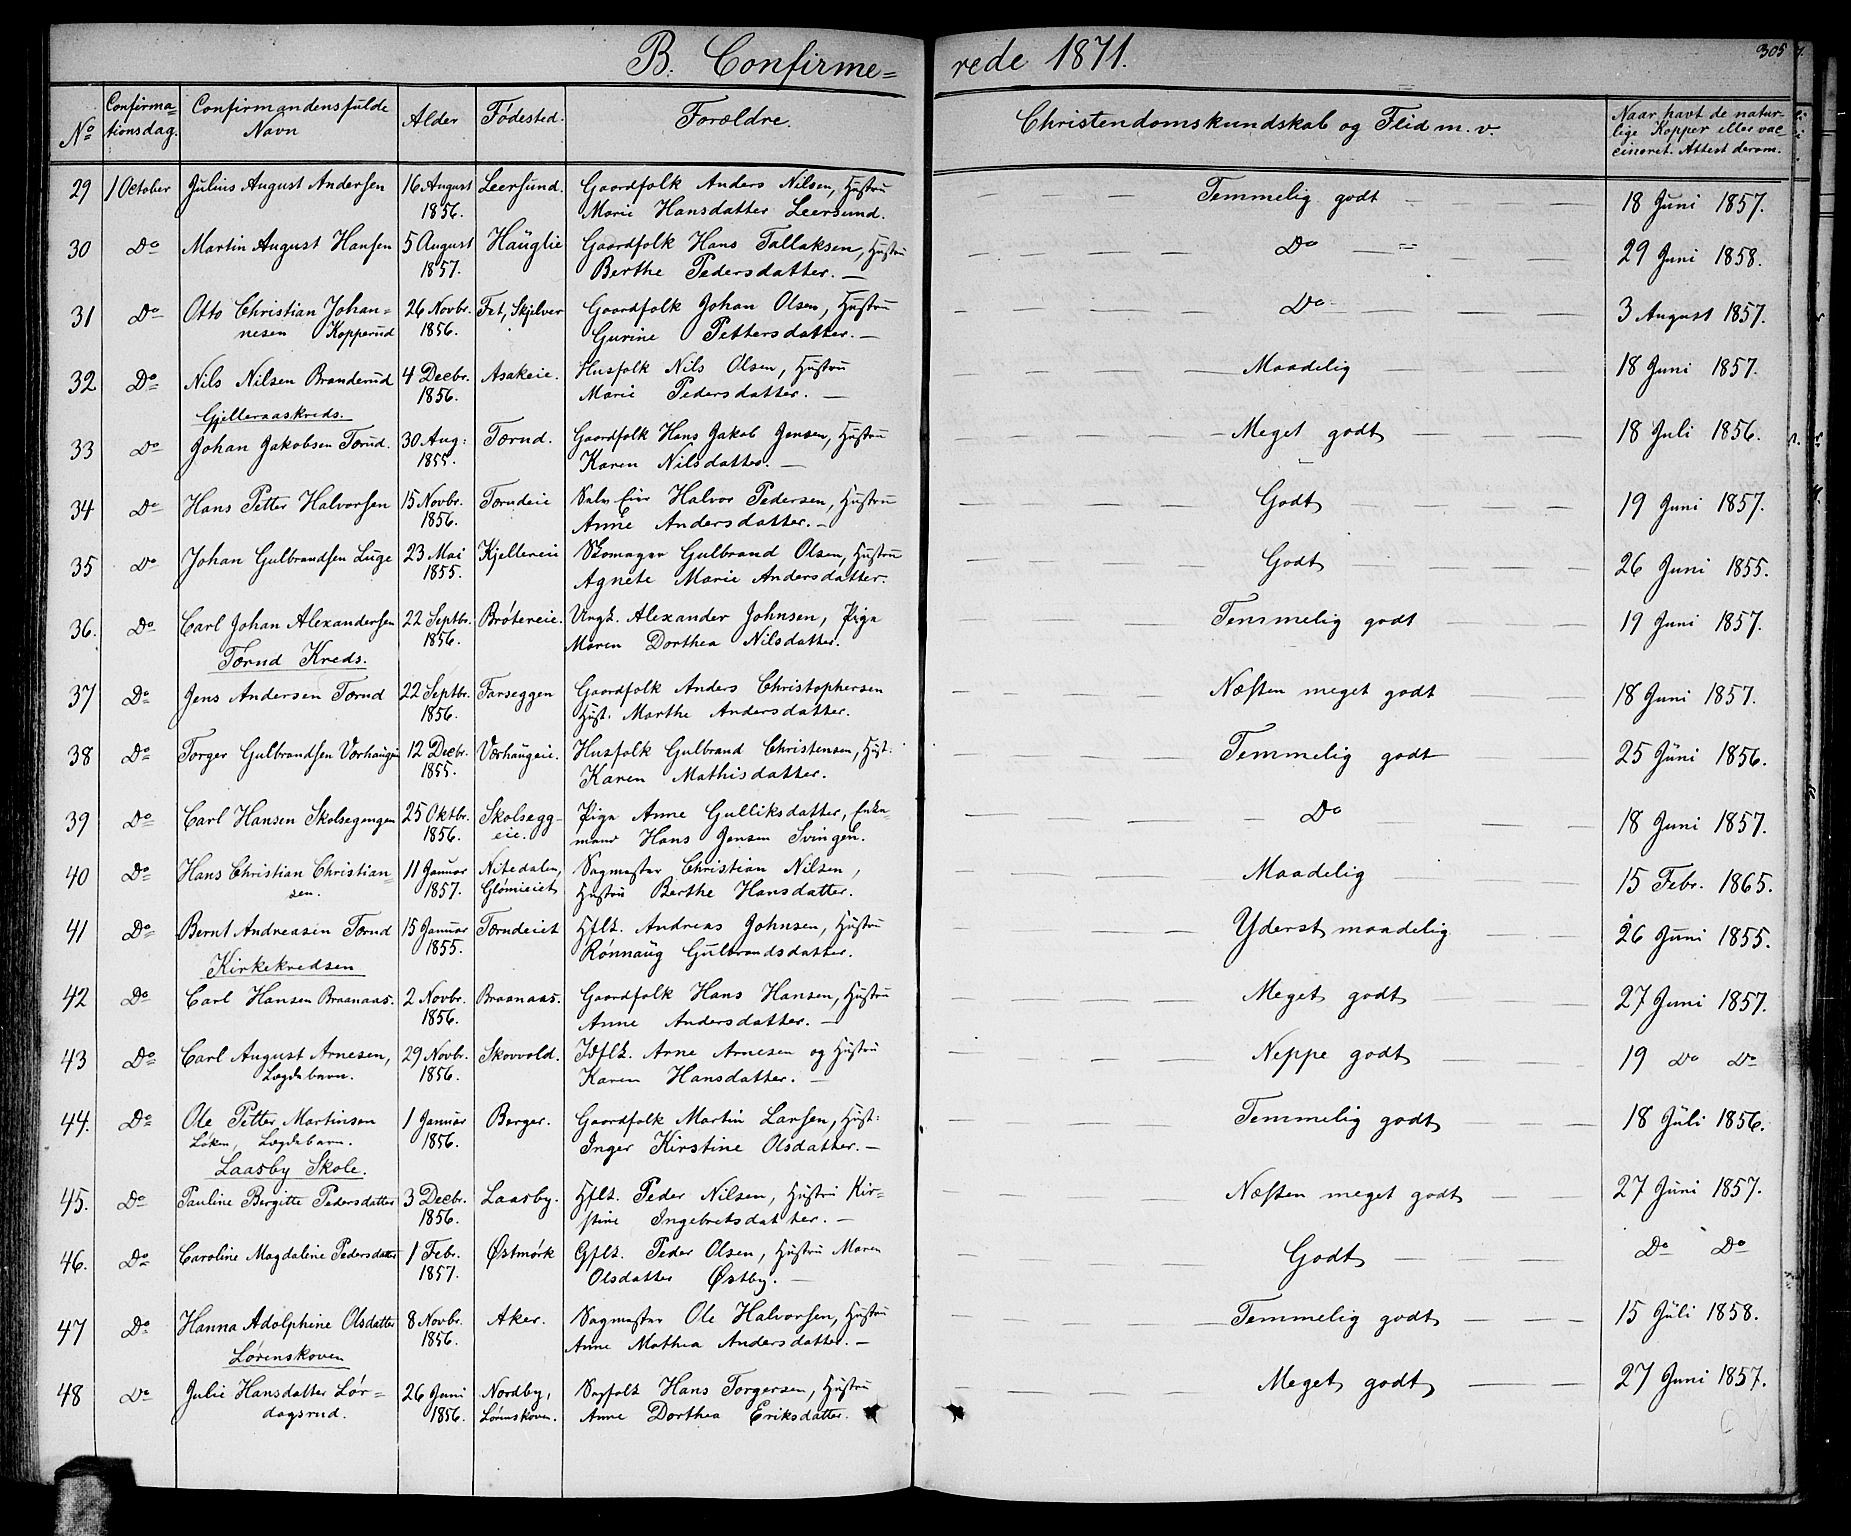 B. Confirme=rede 1871.
305
No
Confirma=
tionsdag.
Confirmandens fulde
Navn
Alder
Fødested.
Forældre.
Christendomskundskab og Flid m. v.
Naar havt de natur-
lige Kopper eller vac
cineret. Attest derom.
29 1 October Julius August Andersen 16 August Leersund. Gaardfolk Anders Nilsen, Hustru Temmelig godt 18 Juni 1857.
1856. Marie Hansdatter Leersund.
30 Do Martin August Hansen 5 August Hauglie Gaardfolk Hans Tallaksen, Hustru Do 29 Juni 1858.
1857. Berthe Pedersdatter.
31 Do Otto Christian Johan= 26 Novbr. Fet, Skjelver Gaardfolk Johan Olsen, Hustru Do 3 August 1857.
nesen Kopperud 1856. Gurine Pettersdatter.
32 Do Nils Nilsen Branderud 4 Decbr. Asakeie. Husfolk Nils Olsen, Hustru Maadelig 18 Juni 1857.
1856. Marie Pedersdatter.
Gjelleraaskreds.
33 Do Johan Jakobsen Tærud. 30 Aug: Tærud. Gaardfolk Hans Jakob Jensen, Hustru Meget godt 18 Juli 1856.
1855. Karen Nilsdatter.
34 Do Hans Petter Halvorsen 15 Novbr. Tærudeie Halvor Pedersen, Hustru Godt 19 Juni 1857.
1856. Anne Andersdatter.
35 Do Johan Gulbrandsen Luge 23 Mai Kjellereie Skomager Gulbrand Olsen, Hustru Godt 26 Juni 1855.
1855. Agnete Marie Andersdatter.
36. Do Carl Johan Alexandersen 22 Septbr. Brøtereie. Ungk. Alexander Johnsen, Piga Temmelig godt 19 Juni 1857.
1856. Maren Dorthea Nilsdatter.
Tærud Kreds.
37 Do Jens Andersen Tærud 22 Septbr. Farseggen Gaardfolk Anders Christophersen Næsten meget godt 18 Juni 1857.
1856. Hust. Marthe Andersdatter.
38 Do Torger Gulbrandsen Vorhaugen 12 Decbr. Værhaugeie. Husfolk Gulbrand Christensen, Hust. Temmelig godt 25 Juni 1856.
1855. Karen Mathisdatter.
39 Do Carl Hansen Skolsegengen 25 Oktbr. Skolsegg- Piga Anne Gulliksdatter, Enke- Do 18 Juni 1857.
1856. eie. mand Hans Jensen Svingen.
40 Do Hans Christian Christian= 11 Januar Nitedalen, Sagmester Christian Nilsen, Maadelig 15 Febr. 1865.
sen. 1857. Glømieiet Hustru Berthe Hansdatter.
41 Do Bernt Andreasen Tærud 15 Januar Tærudeiet Hflk. Andreas Johnsen, Hustru Yderst maadelig 26 Juni 1855.
1855. Rønnaug Gulbrandsdatter.
Kirkekredsen
42 Do Carl Hansen Braanaas. 2 Novbr. Braanaas. Gaardfolk Hans Hansen, Hustru Meget godt 27 Juni 1857.
1856. Anne Andersdatter.
43 Do Carl August Arnesen, 29 Novbr. Skovvold. Idflk. Arne Arnesen og Hustru Neppe godt 19 Do Do
Lægdsbarn. 1856. Karen Hansdatter.
44. Do Ole Petter Martinsen 1 Januar Berger. Gaardfolk Martin Larsen, Hust: Temmelig godt 18 Juli 1856.
Løken, Lægdsbarn. 1856. Inger Kirstine Olsdatter.
Laasby Skole.
45. Do Pauline Bergitte Pedersdatter 3 Decbr. Laasby. Hflk. Peder Nilsen, Hustru Kir= Næsten meget godt 27 Juni 1857.
1856. stine Ingebretsdatter.
46. Do Caroline Magdalene Pedersdatter 1 Febr. Østmørk Gflk. Peder Olsen, Hustru Maren Godt Do Do
1857. Olsdatter Østby.
47 Do Hanna Adolphine Olsdatter 8 Novbr. Aker. Sagmester Ole Halvorsen, Hustru Temmelig godt 15 Juli 1858.
1856. Anne Mathea Andersdatter.
Lørenskoven
48 Do Julie Hansdatter Lør= 26 Juni Nordby, Hans Torgersen, Hustru Meget godt 27 Juni 1857.
dagsrud. 1856. Lørenskoven. Anne Dorthea Eriksdatter.